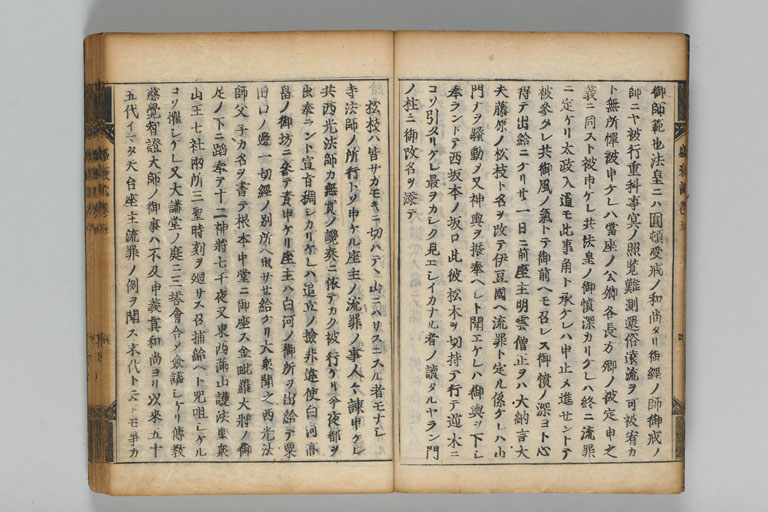 御師範也法皇ニハ圓頓受戒ノ和尚タリ御經ノ師御戒ノ
師ニヤ被行重科事冥ノ照覧難測還俗遠流ヲ可被宥カ
ト無所憚被申ケレハ當座ノ公卿各長方卿ノ被定申之
義ニ同スト被申ケレ共法皇ノ御憤深カリケレハ終ニ流罪
ニ定ケリ太政入道モ此事角ト承ケレハ申止メ進セントテ
被參タレ共御風ノ氣トテ御前ヘモ召レス御憤ノ深ヨト心
得テ出給ニケリ廿一日ニ前座主明雲僧正ヲハ大納言大
夫藤原ノ松枝ト名ヲ改テ伊豆國ヘ流罪ト定ル係ケレハ山
門ナヲ騒動ノ又神輿ヲ振奉ヘシト聞エケレハ御輿ヲ下シ
奉ラントテ西坂本ノ坂口此彼松木ヲ切持テ行テ逆木ニ
コソ引タリケレ最ヲカシク見エシイカナル者ノ讀タルヤラン門
ノ柱ニ御改名ヲ添テ
松枝ハ皆サカモキニ切ハテヽ山ニハリスニスル者モナシ
寺法師ノ所行トソ申ケル座主ノ流罪ノ事人々諫申ケレ
共西光法師カ無實ノ讒奏ニ依テカク被行ケリ今夜都ヲ
出奉ラント宣旨稠シカリケレハ追立ノ撿非違使白河高
畠ノ御坊ニ參テ責申ケリ座主ハ白河ノ御所ヲ出給テ粟
田口ノ邊一切經ノ別所ヘ出サセ給ケリ大衆聞之西光法
師父子カ名ヲ書テ根本中堂ニ御座ス金毗羅大將ノ御
足ノ下ニ蹈奉テ十二神將七千夜叉東西滿山護法聖衆
山王七社兩所三聖時刻ヲ廻サス召捕給ヘト咒咀シケル
コソ懼シケレ又大講堂ノ庭ニ三塔會合シ僉議シケリ傳教
慈覺智證大師ノ御事ハ不及申義真和尚ヨリ以來五十
五代イマタ天台座主流罪ノ例ヲ聞ス末代ト云トモ爭カ